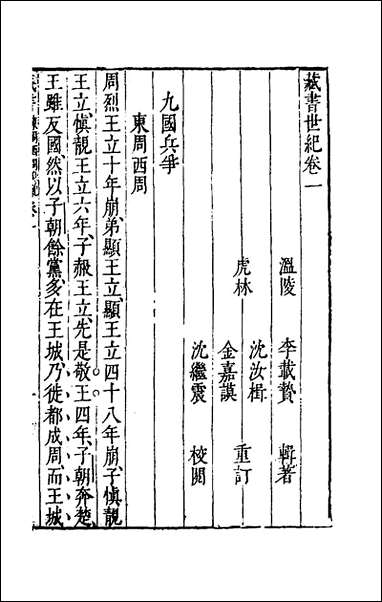 藏書世紀卷一
溫陵 李載贄 輯著
沈汝楫
虎林 重訂
金嘉謨
沈繼震 校閱
九國兵爭
東周西周
周烈王立十年崩弟顯王立顯王立四十八年崩子慎靚
王立慎靚王立六年子赧王立先是敬王四年子朝奔楚
王雖反國然以子朝餘黨多在王城乃徙都成周而王城